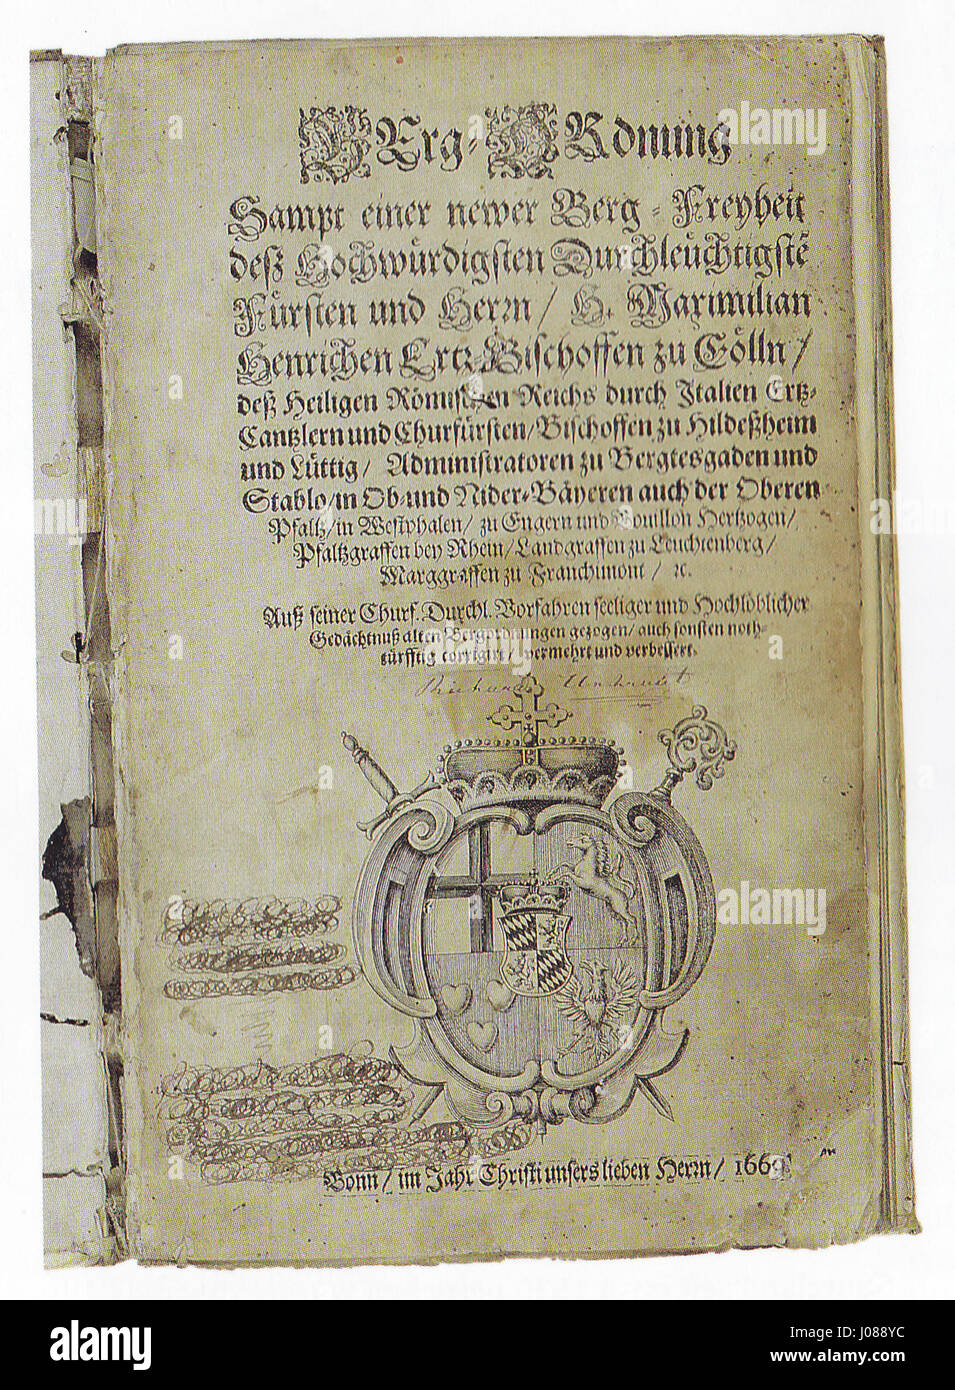 BErg-ORdnung
Sampt einer newer Berg-Freyheit
deß Hochwürdigsten Durchleuchtigstē
Fürsten und Herrn/ H. Maximilian
Henrichen Ertz-Bischoffen zu Cölln/
deß Heiligen Römischen Reichs durch Italien Ertz-
Cantzlern und Churfürsten/Bischoffen zu Hildeßheim
und Lüttig/ Administratoren zu Bergtesgaden und
Stablo/in Ob-und Nider-Bäyeren auch der Oberen
Pfaltz/in Westphalen/ zu Engern und Bouillon Hertzogen/
Pfaltzgraffen bey Rhein/Landgraffen zu Leuchtenberg/
Marggraffen zu Franchimont/ ꝛc.
Auß seiner Churf. Durchl. Vorfahren seeliger und Hochlöblicher
Gedächtnuß alten Bergordnungen gezogen/auch sonsten noth-
türfftig corrigirt/ vermehrt und verbessert.
Bonn/im Jahr Christi unsers lieben Herrn/ 1669
a alamy
alamy
a
a a
alamy
a alamy
alamy
Image ID: J088YC
www.alamy.com